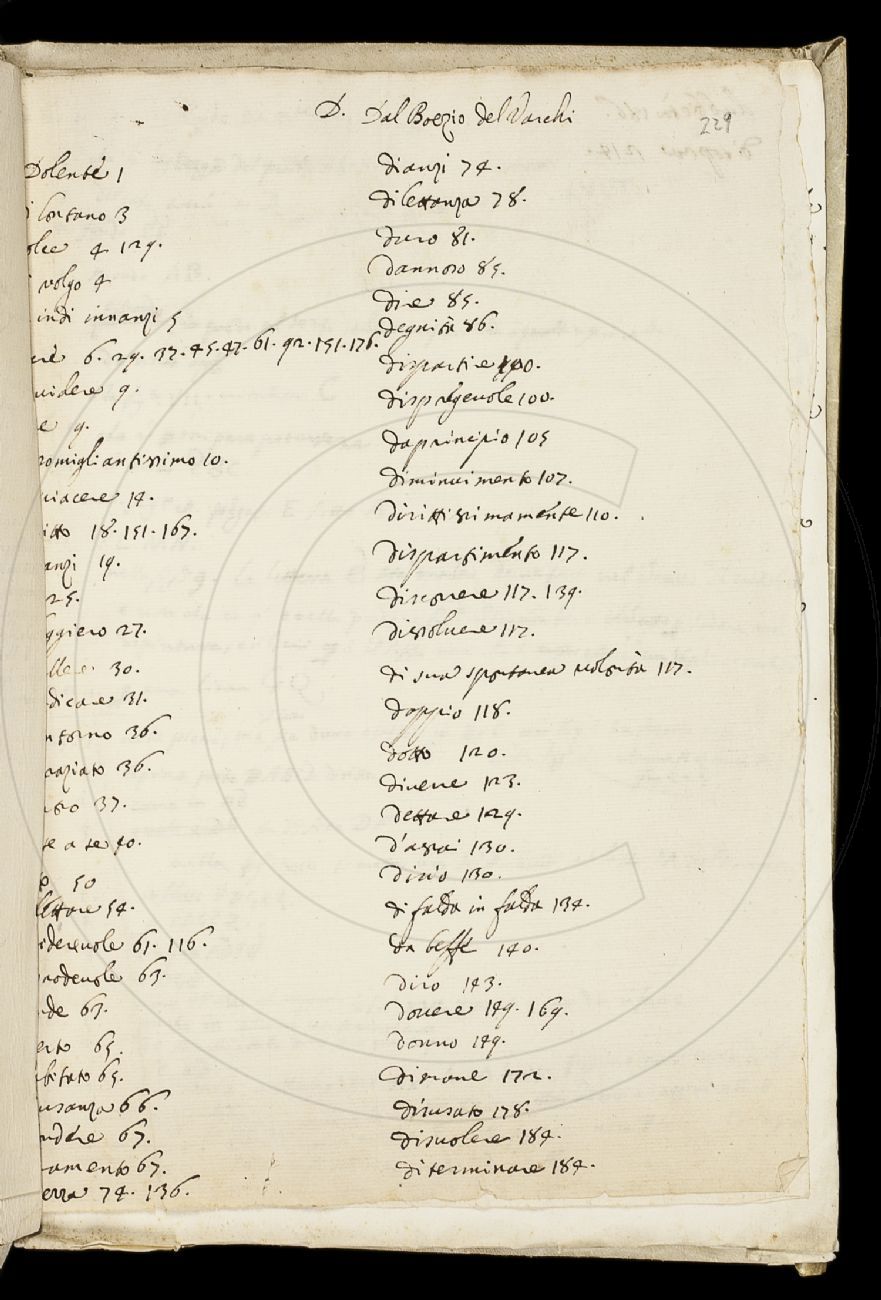 D. Dal Boezio del Varchi
229
Dolente 1
lontano 3
olce 4 129.
volgo 4
indi innanzi 5
are 6. 29. 37. 45. 47. 61. 92. 151. 176.
uidere 9.
e 9.
somigliantissimo 10.
iacere 14.
itto 18. 151. 167.
anzi 19.
25.
ggiero 27.
30.
dicare 31.
ntorno 36.
aziato 36.
37.
te a te 40.
50
lettare 54.
iderevole 61. 116.
rodeuole 63.
de 63.
erto 65.
bitato 65.
usanza 66.
ndere 67.
amento 67.
erra 74. 136.
dianzi 74.
dilettanza 78.
duro 81.
Dannoso 85.
Dire 85.
degnità 86.
dispartire 100.
dispregeuole 100.
daprincipio 105
diminuimento 107.
dirittissimamente 110.
dispartimento 117.
discorrere 117. 139.
dissoluere 117.
di sua spontanea uolontà 117.
doppio 118.
dotto 120.
diuere 123.
dettare 129.
d'assai 130.
disio 130.
di falda in falda 134.
da beffe 140.
diro 143.
douere 149. 169.
donno 149.
Disione 172.
disusato 178.
disuolere 184.
diterminare 184.